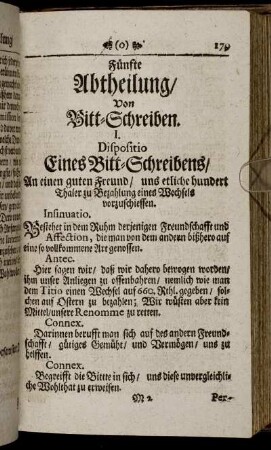 (o) 179
Fünfte
Abtheilung/
Von
Bitt-Schreiben.
I.
Dispositio
Eines Bitt-Schreibens/
An einen guten Freund/ uns etliche hundert
Thaler zu Bezahlung eines Wechsels
vorzuschiessen.
Insinuatio.
Bestehet in dem Ruhm derjenigen Freundschafft und
Affection, die man von dem andern bißhero auf
eine so vollkommene Art genossen.
Antec.
Hier sagen wir/ daß wir dahero bewogen worden/
ihn unser Anliegen zu offenbahren/ nemlich wie man
dem Titio einen Wechsel auf 660. Rthl. gegeben/ sol-
chen auf Ostern zu bezahlen; Wir wüsten aber kein
Mittel/unsere Renomme zu retten.
Connex.
Darinnen berufft man sich auf des andern Freund-
schafft/ gütiges Gemüht/ und Vermögen/ uns zu
helffen.
Connex.
Begreifft die Bitte in sich/ uns diese unvergleichli-
che Wohlthat zu erweisen.
M 2. Per-